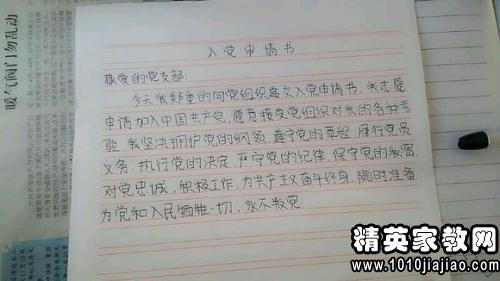 入党申请书
敬爱的党支部:
今天我郑重的向党组织递交入党申请书。我志愿
申请加入中国共产党，愿意接受党组织对我的各种考
验。我坚决拥护党的纲领，遵守党的章程，履行党员
义务，执行党的决定，严守党的纪律，保守党的秘密，
对党忠诚，积极工作，为共产主义奋斗终身，随时准备
为党和人民牺牲一切，永不叛党
暖气阀门勿乱动
精英家教网
www.1010jiajiao.com